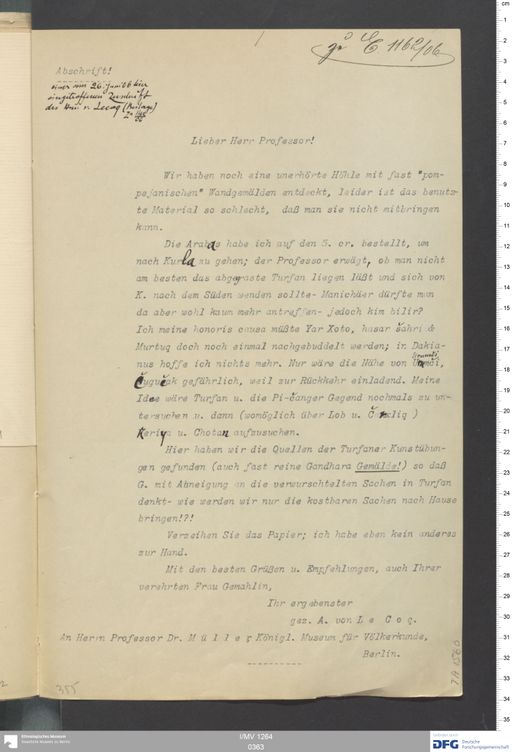 zu E 1162/06
Abschrift!
einer am 26. Juni 06 hier
eingetroffenen Zuschrift
des Hrn v. Lecoq (Beilage)
Lieber Herr Professor!
Wir haben noch eine unerhörte Höhle mit fast "pom-
pejanischen" Wandgemälden entdeckt, leider ist das benutz-
te Material so schlecht, daß man sie nicht mitbringen
kann.
Die Arabas habe ich auf den 5. cr. bestellt, um
nach Kurla zu gehen; der Professor erwägt, ob man nicht
am besten das abgegraste Turfan liegen läßt und sich von
K. nach dem Süden wenden sollte- Manichäer dürfte man
da aber wohl kaum mehr antreffen- jedoch kim bilir?
Ich meine honoris causa müßte Yar Xoto, hasar šahri &
Murtuq doch noch einmal nachgebuddelt werden; in Dakia-
nus hoffe ich nichts mehr. Nur wäre die Nähe von Urumči,
Čugučak gefährlich, weil zur Rückkehr einladend. Meine
Idee wäre Turfan u. die Pi-čanger Gegend nochmals zu un-
tersuchen u. dann (womöglich über Lob u. )
Keriya u. Chotan aufzusuchen.
Hier haben wir die Quellen der Turfaner Kunstübun-
gen gefunden (auch fast reine Gandhara Gemälde!) so daß
G. mit Abneigung an die verwurschtelten Sachen in Turfan
denkt- wie werden wir nur die kostbaren Sachen nach Hause
bringen!?!
Verzeihen Sie das Papier; ich habe eben kein anderes
zur Hand.
Mit den besten Grüßen u. Empfehlungen, auch Ihrer
verehrten Frau Gemahlin,
Ihr ergebenster
gez. A. von L e C o q.
An Herrn Professor Dr. M ü l l e r Königl. Museum für Völkerkunde,
Berlin.
355
Ethnologisches Museum
Staatliche Museen zu Berlin
I/MV 1264
0363
DFG Deutsche
Forschungsgemeinschaft